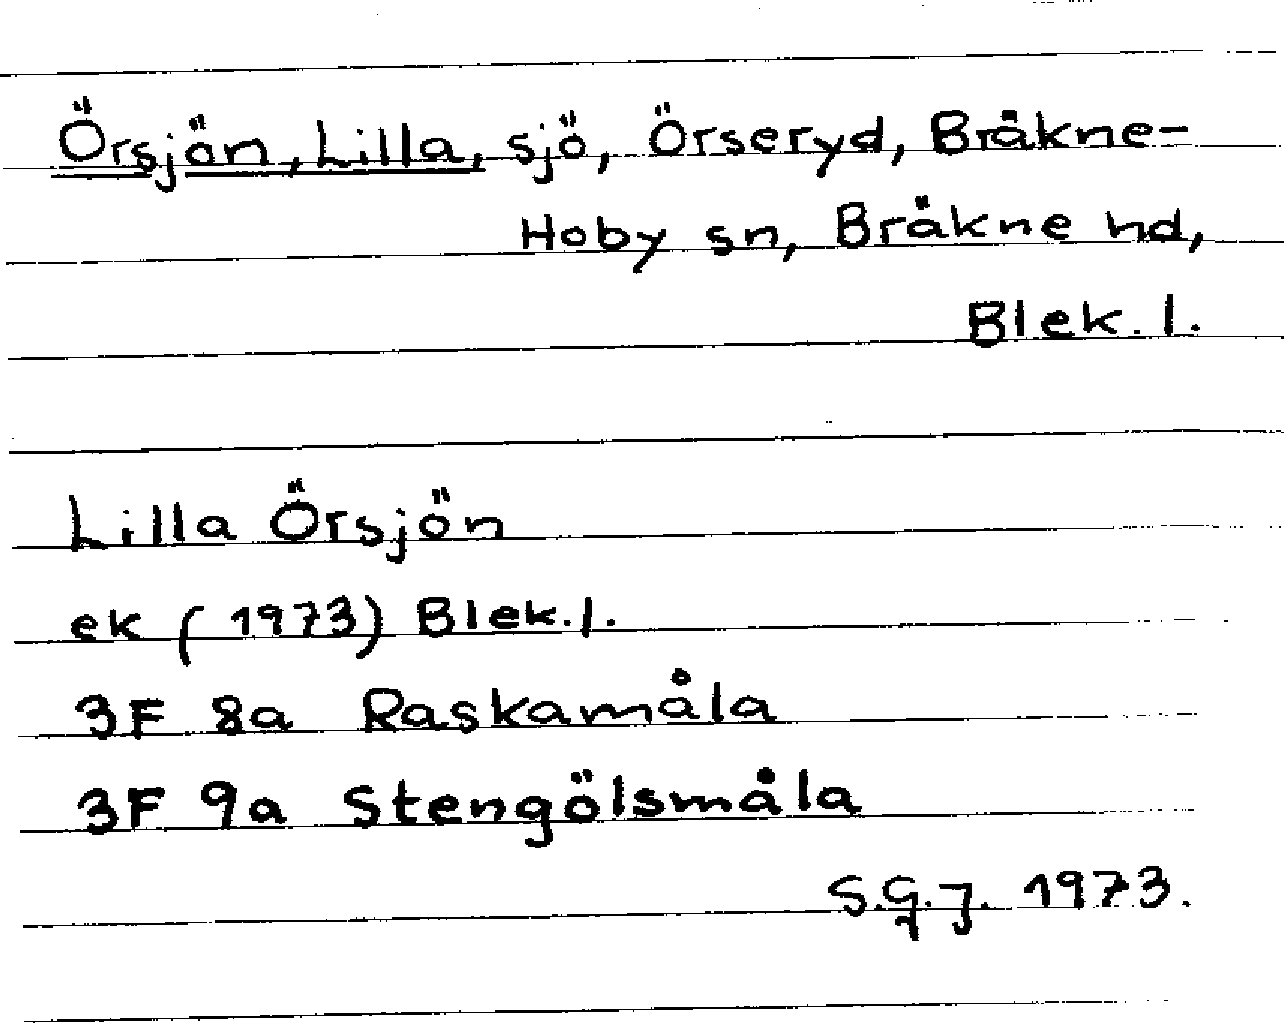 Örsjön, Lilla, sjö, Örseryd, Bräkne-
Hoby sn, Bräkne hd,
Blek. l.
Lilla Örsjön
ek (1973) Blek. l.
3F 8a Raskamåla
3F 9a Stengölsmåla
S.G.J. 1973.